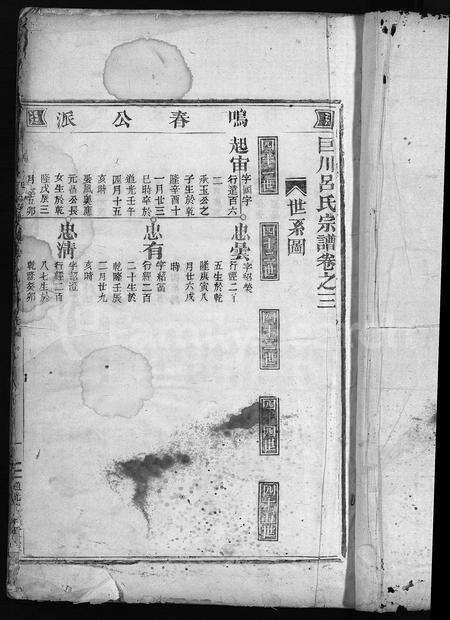 鳴春公派
巨川呂氏宗譜卷之三
世系圖
四十一世
四十二世
四十三世
四十四世
四十五世
起宙
行道百六
承玉公之
子生於乾
隆辛酉十
一月廿三
巳時卒於
道光壬午
四月十五
亥時
元公長
女生於乾
隆戊辰三
忠曇
五生於乾
隆庚寅八
月廿六戌
時
忠有
行經二百
二十生於
乾隆壬辰
二月廿九
亥時
忠清
行經二百
八七生於
乾隆癸卯